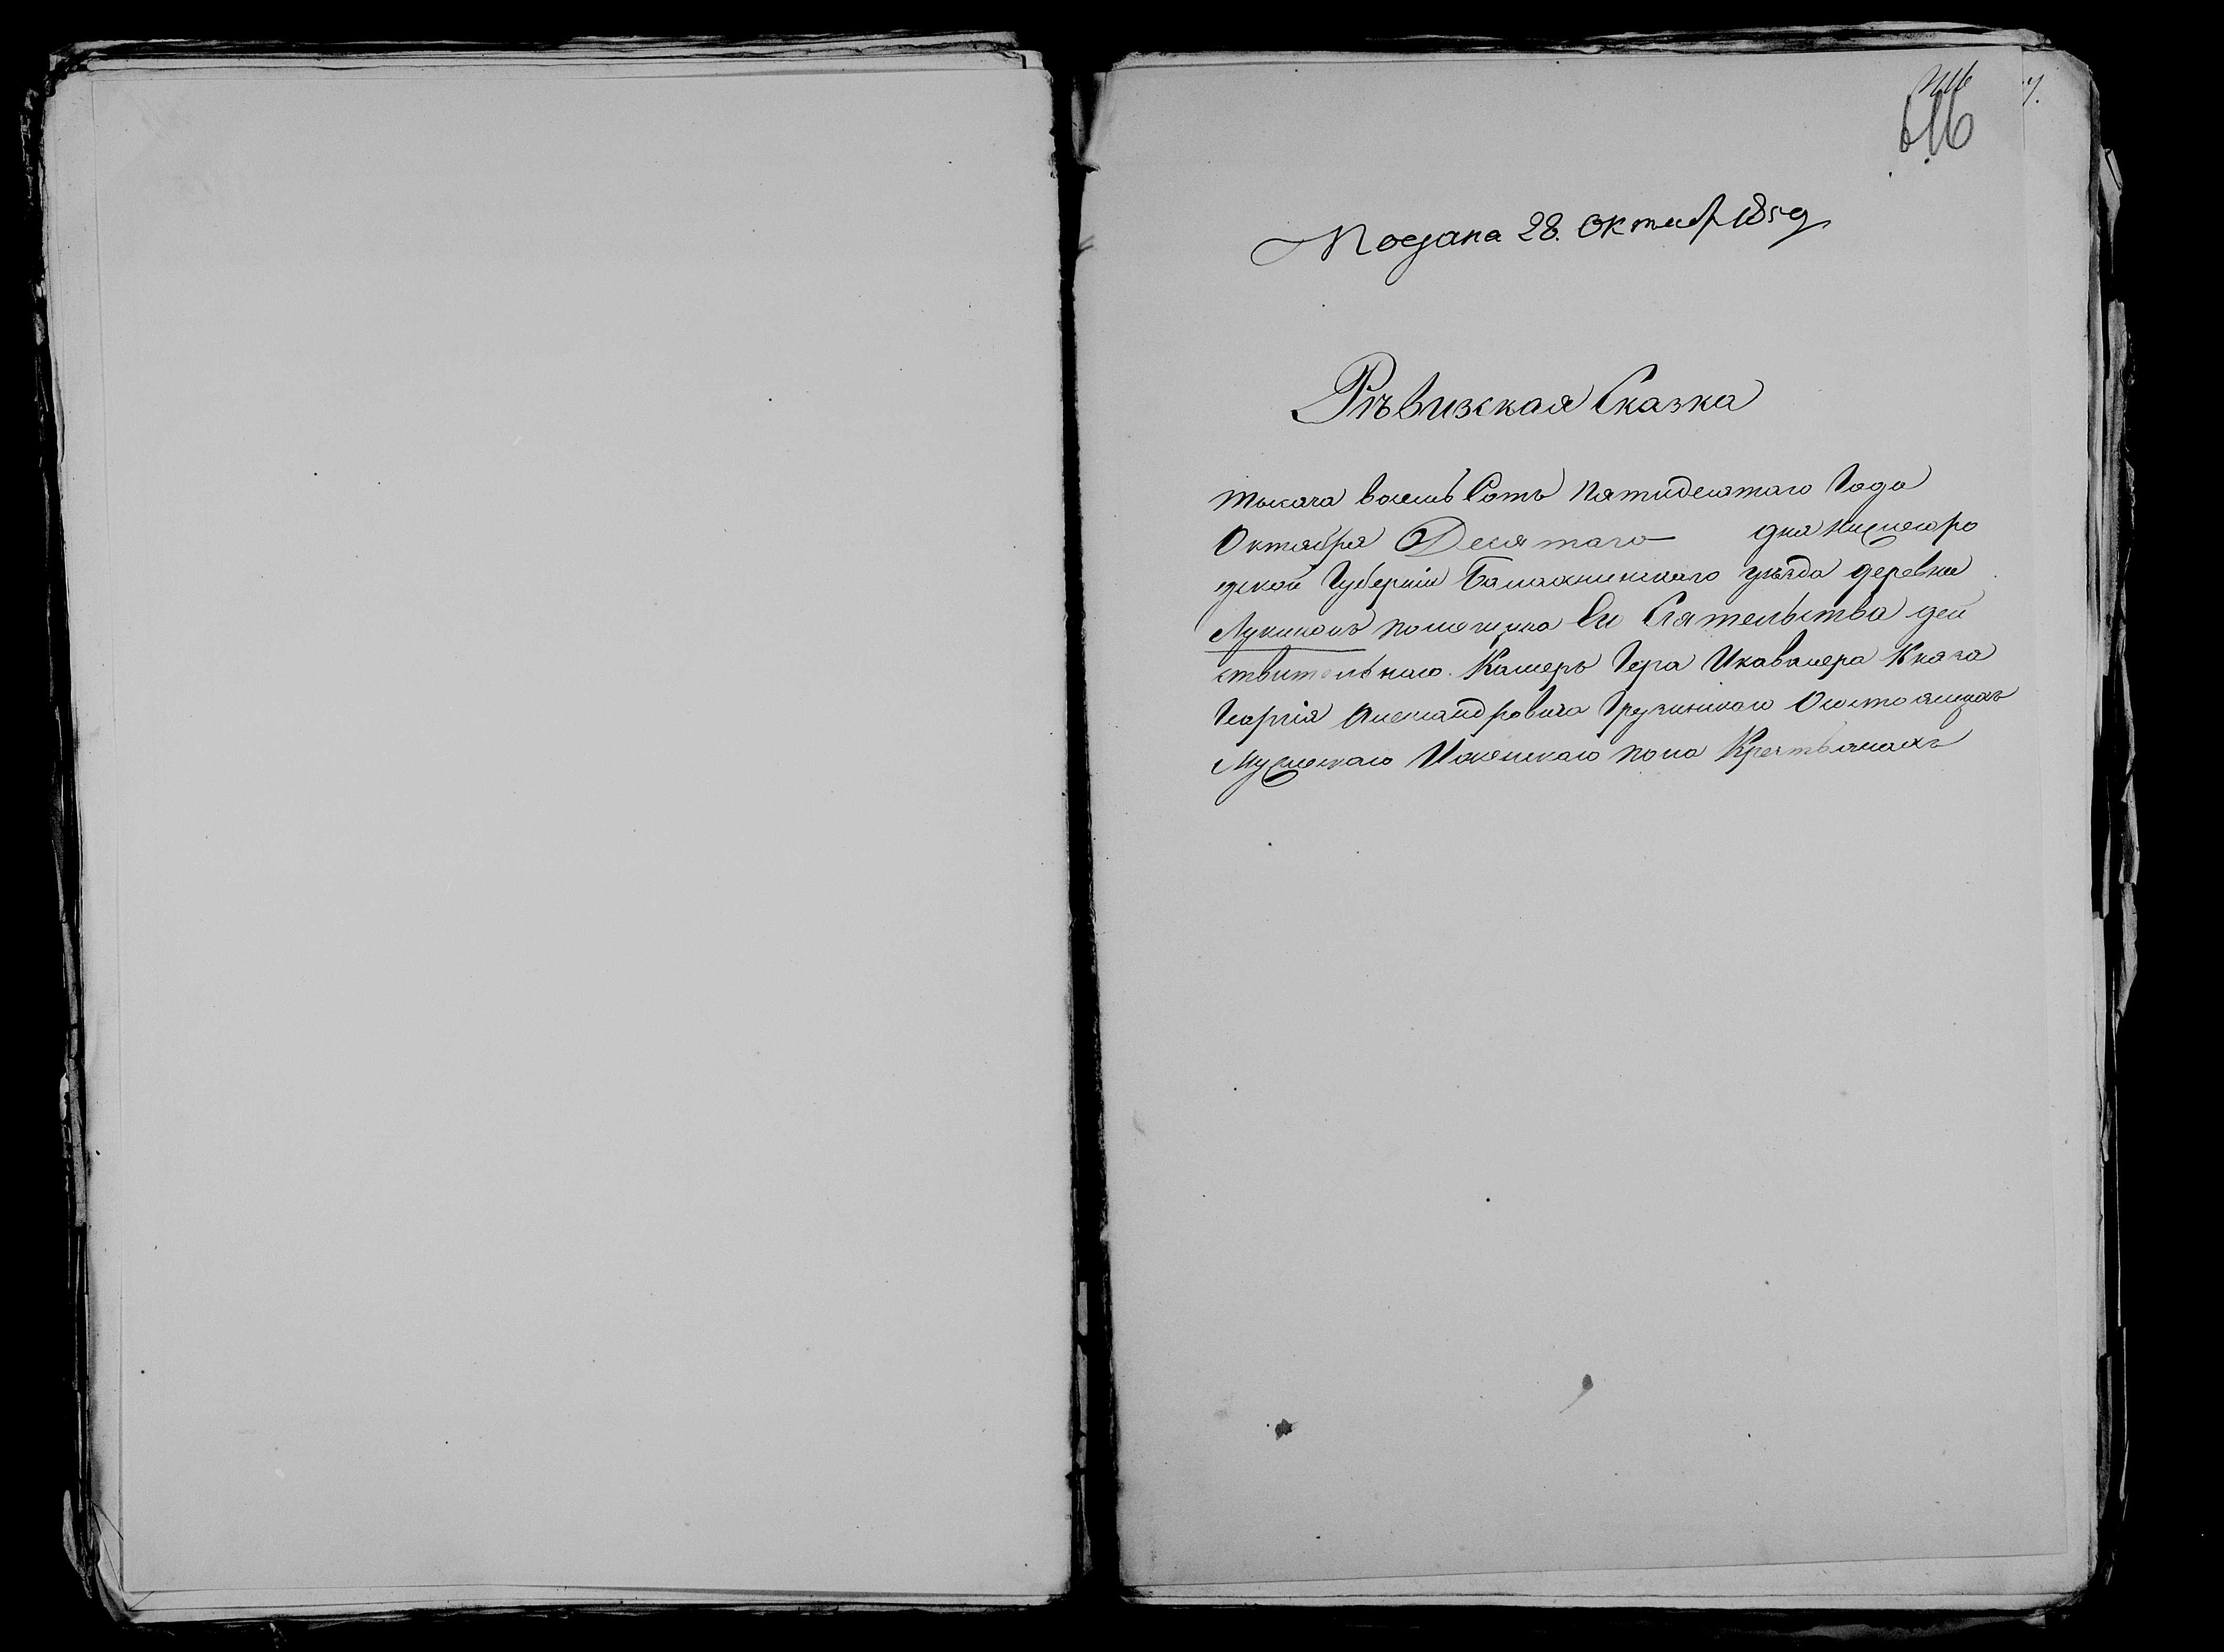 616
Подана 28. Октяб 1850
Рѣвизская Сказка
Тысяча восемь Сотъ Пятидесятаго Года
Октября Десятаго дня Нижегоро
дской Губерніи Балахнинскаго уѣзда деревни
Лукинокъ помещика Ею Сіятельства деи
ствительнаго Камеръ Гера Икавалера Князя
Георгія Александровича Грузинскаго Осостоящихъ
Мужескаго Иженскаго пола Крестьянахъ